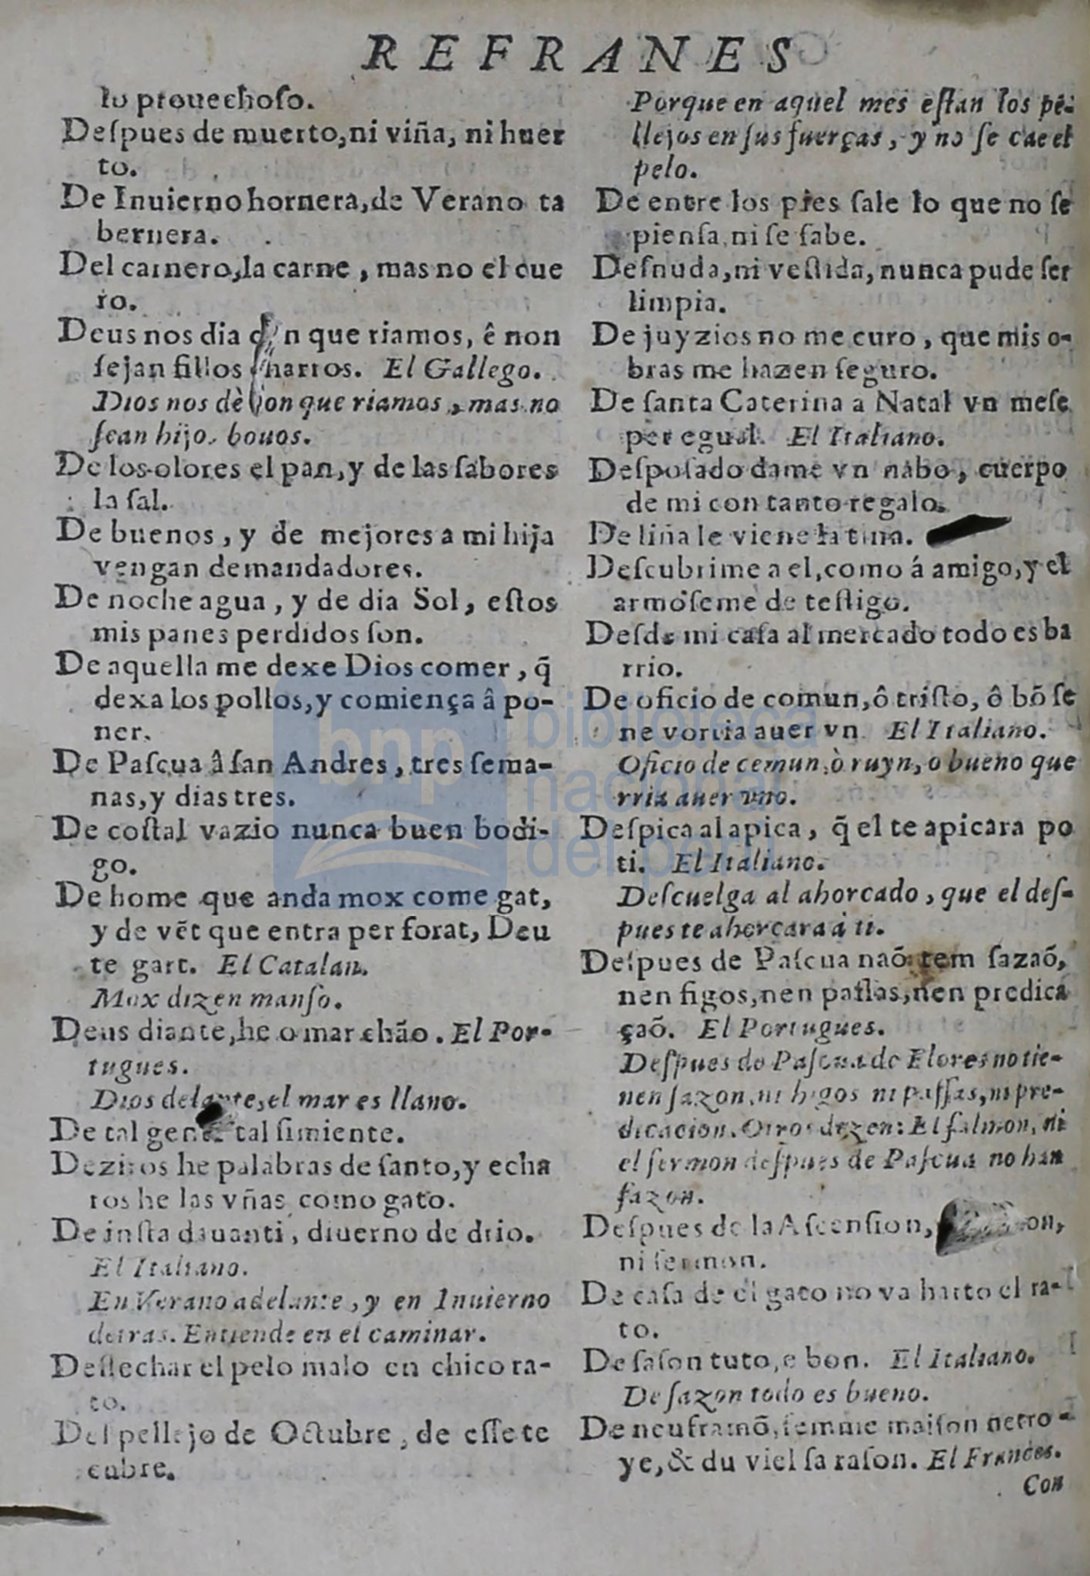 REFRANES
lo prouechoſo.
Deſpues de muerto, ni viña, ni huer
to.
De Inuierno hornera, de Verano ta
bernera.
Del carnero, la carne, mas no el cue
ro.
Deus nos dia que riamos, ê non
ſejan fillos harros. El Gallego.
Dios nos dè con que riamos, mas no
ſean hijos bouos.
De los olores el pan, y de las ſabores
la ſal.
De buenos, y de mejores a mi hija
vengan demandadores.
De noche agua, y de dia Sol, eſtos
mis panes perdidos ſon.
De aquella me dexe Dios comer, q̃
dexa los pollos, y comiença â po-
ner.
De Paſcua â ſan Andres, tres ſema-
nas, y dias tres.
De coſtal vazio nunca buen bodi-
go.
De home que anda mox come gat,
y de vēt que entra per forat, Deu
te gart. El Catalan.
Mox dizen manſo.
Deus diante, he o mar chão. El Por-
tugues.
Dios delante, el mar es llano.
De tal gente tal ſimiente.
Deziros he palabras de ſanto, y echa
ros he las vñas como gato.
De inſta dauanti, diuerno de drio.
El Italiano.
En Verano adelante, y en Inuierno
detras. Entiende en el caminar.
Deſlechar el pelo malo en chico ra-
to.
Del pellejo de Octubre, de eſſe te
cubre.
Porque en aquel mes eſtan los pe-
llejos en ſus fuerças, y no ſe cae el
pelo.
De entre los pies ſale lo que no ſe
pienſa, ni ſe ſabe.
Deſnuda, ni veſtida, nunca pude ſer
limpia.
De juyzios no me curo, que mis o-
bras me hazen ſeguro.
De ſanta Caterina a Natal vn meſe
per egual. El Italiano.
Deſpoſado dame vn nabo, cuerpo
de mi con tanto regalo.
De liña le viene la tiña.
Deſcubrime a el, como á amigo, y el
armoſeme de teſtigo.
Deſde mi caſa al mercado todo es ba
rrio.
De oficio de comun, ô triſto, ô bõ ſe
ne vorria auer vn. El Italiano.
Oficio de comun, ò ruyn, o bueno que
rria auer vno.
Deſpica al apica, q̃ el te apicara po
ti. El Italiano.
Deſcuelga al ahorcado, que el deſ-
pues te ahorcara à ti.
Deſpues de Paſcua naõ tem ſazaõ,
nen figos, nen paſſas, nen predica
çaõ. El Portugues.
Deſpues de Paſcua de Flores no tie-
nen ſazon, ni higos ni paſſas, ni pre-
dicacion. Otros dizen: El ſalmon, ni
el ſermon deſpues de Paſcua no han
ſazon.
Deſpues de la Aſcenſion, on,
ni ſermon.
De caſa de el gato no va harto el ra-
to.
De ſaſon tuto, e bon. El Italiano.
De ſazon todo es bueno.
De neuf ramõ, femme maiſon netro-
ye, & du viel ſa raſon. El Frances.
Con
biblioteca
nacional
del perú
bnp